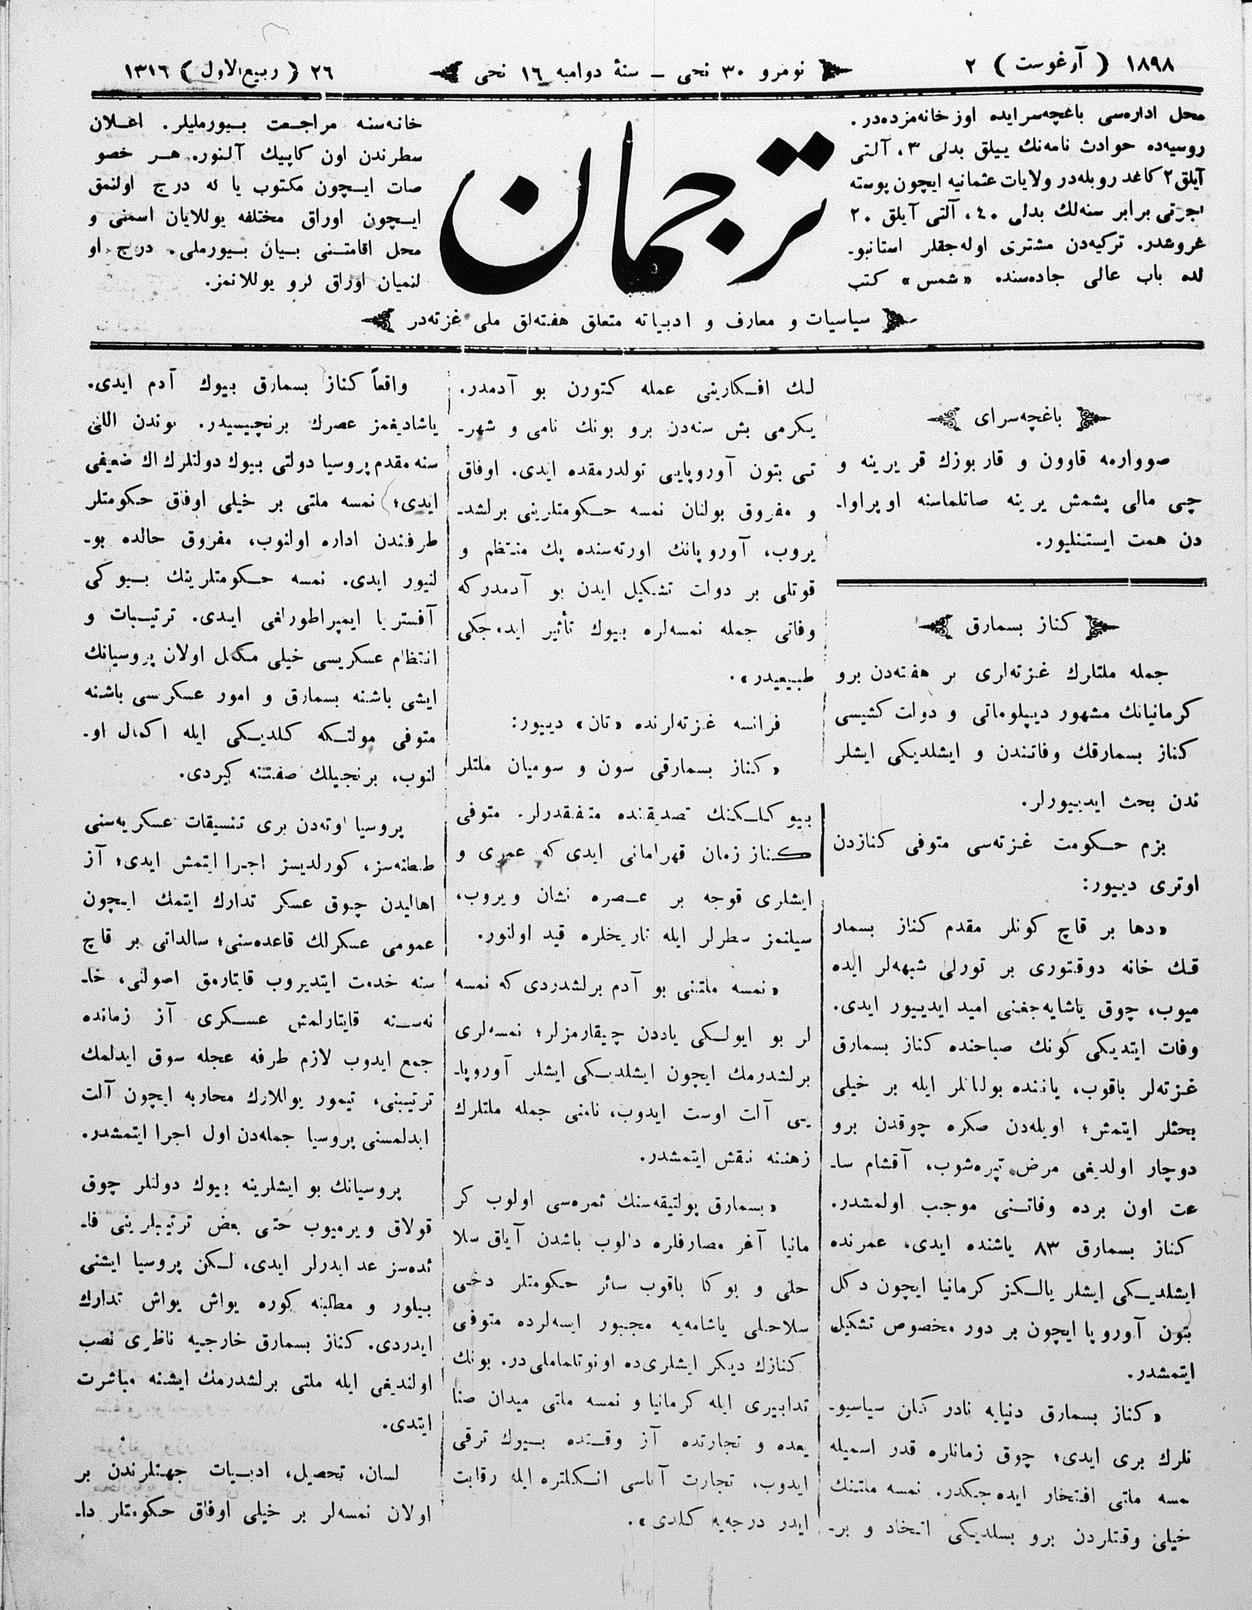 ١٨٩٨ ( آرغوست ) ٢
نومرو ٣٠ نحی ـ سنۀ دوامیه ١٦ نحی
٢٦ ( ربيع الاول ) ١٣١٦
محل اداره‌سی باغچه‌سرایده اوز خانه‌مزده‌در.
روسیه‌ده حوادث نامه‌نك ییللق بدلی ٣، آلتی
آیلق ٢ كاغد روبله‌در ولایات عثمانیه ایچون پوسته
اجرتی برابر سنه‌لك بدلی ٤٠، آلتی آیلق ٢٠
غروشدر. تركیه‌دن مشتری اوله‌جقلر استانبو‌ـ
لده باب عالی جاده‌سنده «شمس» كتب
خانه‌سنه مراجعت بیورملیلر. اعلان
سطرندن اون كاپیك آلنور. هر خصو
صات ایچون مكتوب یا له درج اولنمق
ایچون اوراق مختلفه یوللایان اسمنی و
محل اقامتنی بیان بیورملی. درج او
لنمیان اوراق كرو یوللانمز.
ترجمان
سیاسیات و معارف و ادبیاته متعلق هفته‌لق ملی غزته‌در
باغچه‌سرای
صووارمه قاوون و قاربوزك قریرینه و
چی مالی پشمش یرینه صاتلماسنه اوپراوا‌ـ
دن همت ایستنلیور.
كناز بسمارق
جمله ملتلرك غزته‌لری بر هفته‌دن برو
كرمانیانك مشهور دیپلوماتی و دولت كشیسی
كناز بسمارقك وفاتندن و ایشلدیكی ایشلر
ندن بحث ایدییورلر.
بزم حكومت غزته‌سی متوفی كنازدن
اوتری دییور:
«دها بر قاچ كونلر مقدم كناز بسمار
قك خانه دوقتوری بر تورلی شبهه‌لر ایده
میوب، چوق یاشایه‌جغنی امید ایدییور ایدی.
وفات ایتدیكی كونك صباحنده كناز بسمارق
غزته‌لر باقوب، یاننده بولنانلر ایله بر خیلی
بحثلر ایتمش؛ اویله‌دن صكره چوقدن برو
دوچار اولدیغی مرض تپره‌شوب، آقشام سا‌ـ
عت اون برده وفاتنی موجب اولمشدر.
كناز بسمارق ٨٣ یاشنده ایدی. عمرنده
ایشلدیكی ایشلر یالكز كرمانیا ایچون دكل
بتون آوروپا ایچون بر دور مخصوص تشكیل
ایتمشدر.
«كناز بسمارق دنیایه نادر كلن سیاسیو‌ـ
نلرك بری ایدی؛ چوق زمانلره قدر اسمیله
نمسه ملتی افتخار ایده‌جكدر. نمسه ملتینك
خیلی وقتلردن برو بسلدیكی اتخاد و بر‌ـ
لك افكارینی عمله كتورن بو آدمدر.
یكرمی بش سنه‌دن برو بونك نامی و شهر‌ـ
تی بتون آوروپایی تولدرمقده ایدی. اوفاق
و مفروق بولنان نمسه حكومتلرینی برلشد‌ـ
یروب، آوروپانك اورته‌سنده پك منتظم و
قوتلی بر دولت تشكیل ایدن بو آدمدركه
وفاتی جمله نمسه‌لره بیوك تأثیر ایده‌جكی
طبیعیدر».
فرانسه غزته‌لرنده «تان» دییور:
«كناز بسمارقی سون و سومیان ملتلر
بیوكلكنك تصدیقنده متفقدرلر. متوفی
كناز زمان قهرامانی ایدی كه عمری و
ایشلری قوجه بر عصره نشان ویروب،
سیلنمز سطرلر ایله تاریخلره قید اولنور.
«نمسه ملتنی بو آدم برلشدردی كه نمسه
لر بو ایولكی یاددن چیقارمزلر؛ نمسه‌لری
برلشدرمك ایچون ایشلدیكی ایشلر آوروپا‌ـ
یی آلت اوست ایدوب، نامنی جمله ملتلرك
زهننه نقش ایتمشدر.
«بسمارق پولتیقه‌سنك ثمره‌سی اولوب كر
مانیا آغر مصارفلره دالوب باشدن آیاق سلا
حلی و بوكا باقوب سائر حكومتلر دخی
سلاحلی یاشامه‌یه مجبور ایسه‌لرده متوفی
كنازك دیكر ایشلری‌ده اونوتلماملی‌در. بونك
تدابیری ایله كرمانیا و نمسه ملتی میدان صنا
یعده و تجارتده آز وقتده بیوك ترقی
ایدوب، تجارت آناسی انكلتره ایله رقابت
ایدر درجه‌یه كلدی».
واقعاً كناز بسمارق بیوك آدم ایدی.
یاشادیغمز عصرك برنجیسیدر. بوندن اللی
سنه مقدم پروسیا دولتی بیوك دولتلرك اك ضعیفی
ایدی؛ نمسه ملتی بر خیلی اوفاق حكومتلر
طرفندن اداره اولنوب، مفروق حالده بو‌ـ
لنیور ایدی. نمسه حكومتلرینك بیوكی
آفستریا ایمپراطورلغی ایدی. ترتیبات و
انتظام عسكریسی خیلی مكمل اولان پروسیانك
ایشی باشنه بسمارق و امور عسكرسی باشنه
متوفی مولتكه كلدیكی ایله اكمال او‌ـ
لنوب، برنجیلك صفتنه كیردی.
پروسیا اوته‌دن بری تنسیقات عسكریه‌سنی
طنطنه‌سز، كورلدیسز اجرا ایتمش ایدی؛ آز
اهالیدن چوق عسكر تدارك ایتمك ایچون
عمومی عسكرلك قاعده‌سنی؛ سالداتی بر قاچ
سنه خدمت ایتدیروب قایتارمق اصولنی، خا‌ـ
نه‌سنه قایتارلمش عسكری آز زمانده
جمع ایدوب لازم طرفه عجله سوق ایدلمك
ترتیبنی، تیمور یوللارك محاربه ایچون آلت
ایدلمسنی پروسیا جمله‌دن اول اجرا ایتمشدر.
پروسیانك بو ایشلرینه بیوك دولتلر چوق
قولاق ویرمیوب حتی بعض ترتیبلرینی فا‌ـ
ئده‌سز عد ایدرلر ایدی، لكن پروسیا ایشنی
بیلور و مطلبنه كوره یواش یواش تدارك
ایدردی. كناز بسمارق خارجیه ناظری نصب
اولندیغی ایله ملتی برلشدرمك ایشنه مباشرت
ایتدی.
لسان، تحصیل، ادبیات جهتلرندن بر
اولان نمسه‌لر بر خیلی اوفاق حكومتلر دا‌ـ